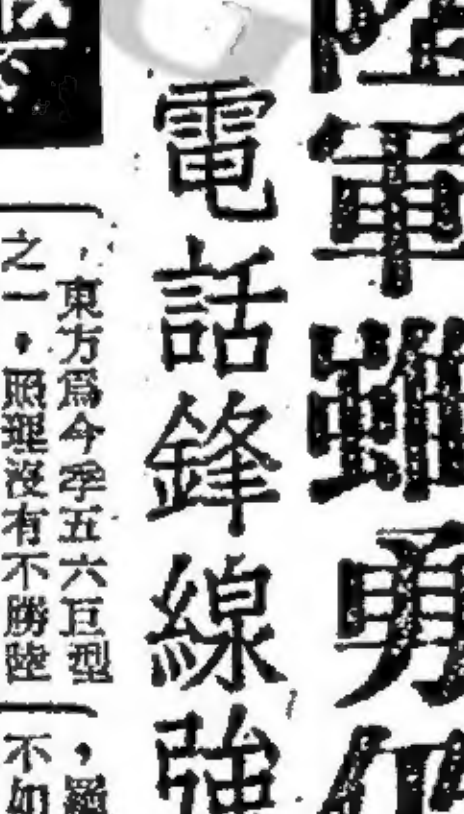 陸軍雖勇仍
電話鋒線強
，東方爲今季五六巨型
之一，照理沒有不勝陸
，羅
不如